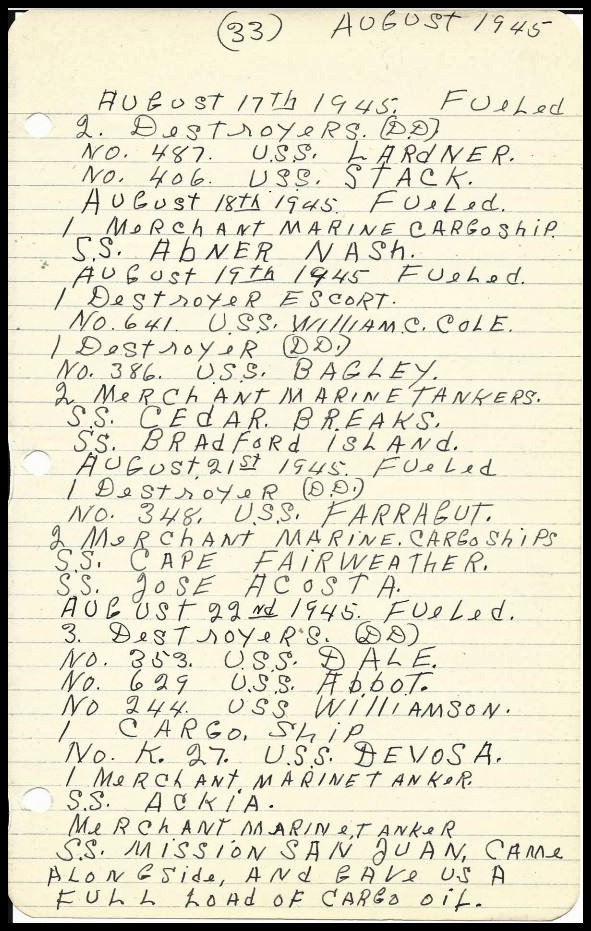 (33) AUGUST 1945
AUGUST 17TH 1945. FUELED
2. DESTROYERS. (DD)
NO. 487. U.S.S. LARDNER.
NO. 406. U.S.S. STACK.
AUGUST 18TH 1945. FUELED.
1 MERCHANT MARINE CARGO SHIP.
S.S. ABNER NASH.
AUGUST 19TH 1945 FUELED.
1 DESTROYER ESCORT.
NO. 641. U.S.S. WILLIAM C. COLE.
1 DESTROYER (DD.)
NO. 386. U.S.S. BAGLEY.
2 MERCHANT MARINE TANKERS.
S.S. CEDAR. BREAKS.
S.S. BRADFORD ISLAND.
AUGUST 21ST 1945. FUELED
1 DESTROYER (D.D.)
NO. 348. U.S.S. FARRAGUT.
2 MERCHANT MARINE. CARGO SHIPS
S.S. CAPE FAIRWEATHER.
S.S. JOSE ACOSTA.
AUGUST 22ND 1945. FUELED.
3. DESTROYERS. (DD)
NO. 353. U.S.S. DALE.
NO. 629 U.S.S. ABBOT.
NO 244. USS WILLIAMSON.
1 CARGO. SHIP
NO. K. 27. U.S.S. DEVOSA.
1 MERCHANT MARINE TANKER.
S.S. ACKIA.
MERCHANT MARINE, TANKER
S.S. MISSION SAN JUAN, CAME
ALONGSIDE, AND GAVE US A
FULL LOAD OF CARGO OIL.